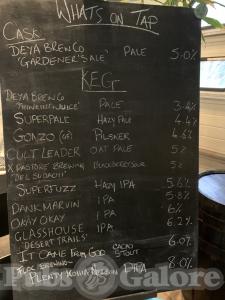 WHATS ON TAP
CASK
DEYA BREW CO PALE 5.0%
'GARDENER'S ALE'
KEG
DEYA BREW CO
PALE 3.4%
SUPERPALE HAZY PALE 4.4%
GONZO (GF) PILSNER 4.6%
CULT LEADER OAT PALE 5%
X PASTORE BREWING 5%
SUPERFUZZ HAZY IPA 5.6%
DANK MARVIN IPA 5.8%
OKAY OKAY IPA 6%
GLASSHOUSE IPA 6.2%
'DESERT TRAILS'
IT CAME FROM GOD CACAO STOUT 6.0%
BREWING
PLENTY DIPA 8.0%
Pubs Galore